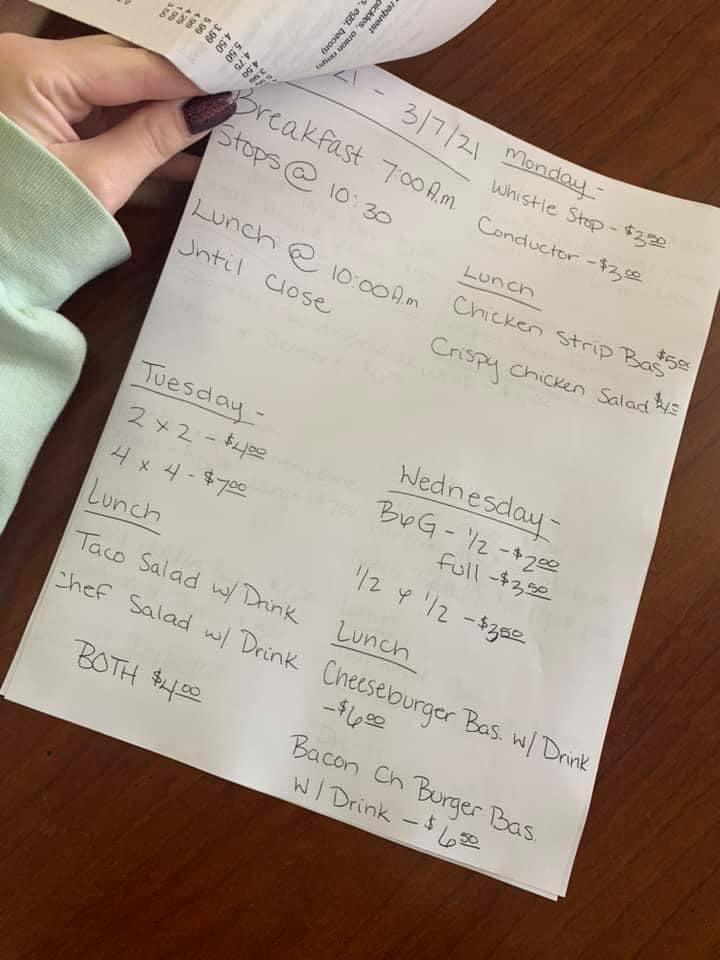 request
pickles, onion rings)
egg, bacon)
3.99
4.50
5.99
4.50
4.75
21 - 3/7/21
Breakfast 7:00 A.m.
Stops @ 10:30
Lunch @ 10:00 A.m
Until Close
Monday -
Whistle Stop - $3.00
Conductor - $3.00
Lunch
Chicken Strip Bas $5.00
Crispy Chicken Salad
Tuesday -
2 x 2 - $4.00
4 x 4 - $7.00
Lunch
Taco Salad w/ Drink
Chef Salad w/ Drink
BOTH $4.00
Wednesday -
B&G - 1/2 - $2.00
full - $3.50
1/2 & 1/2 - $3.50
Lunch
Cheeseburger Bas. w/ Drink
- $6.00
Bacon Ch Burger Bas.
W/ Drink - $6.50